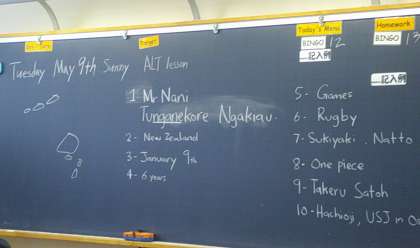 Today's Menu
Homework
BINGO 12
BINGO 13
記入例
記入例
Tuesday May 9th Sunny ALT lesson
1 Mr Nani
Tunganekore Ngakirau.
2- New Zealand
3- January 9th
4- 6 years
5- Games
6- Rugby
7- Sukiyaki, Natto
8- One piece
9- Takeru Satoh
10- Hachioji, USJ in